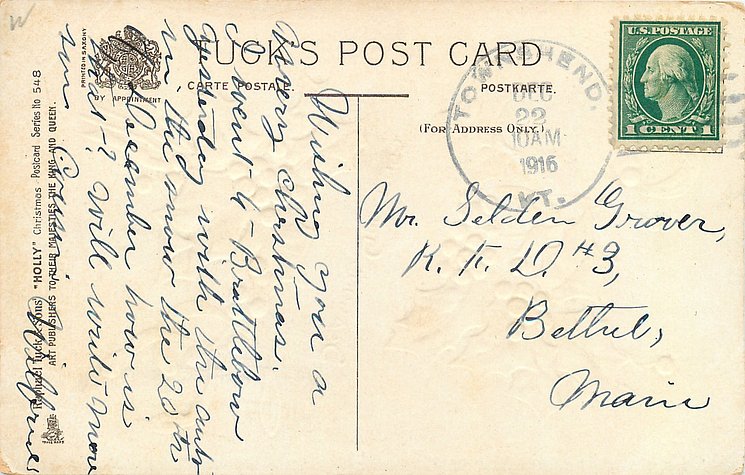 W
TUCK'S POST CARD
CARTE POSTALE.
POSTKARTE.
(FOR ADDRESS ONLY.)
BY APPOINTMENT
PRINTED IN SAXONY
Raphael Tuck & Sons' "HOLLY" Christmas Postcard Series No 548
ART PUBLISHERS TO THEIR MAJESTIES THE KING AND QUEEN.
U.S. POSTAGE
1 CENT 1
TOWNSHEND,
DEC
22
10AM
1916
VT.
Wishing you a
Merry Christmas.
I went to Brattleboro
yesterday with the auto
in the snow the 20th
December how is
that? Will write more
Cousin
Mr. Selden Grover,
R. F. D. #3,
Bethel,
Maine